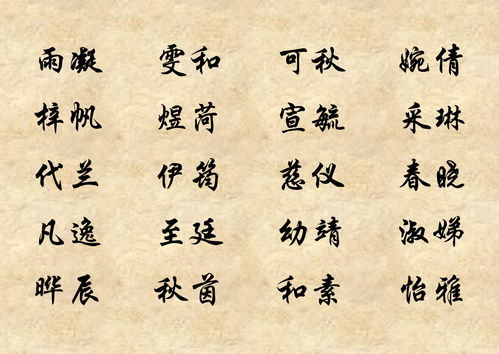 雨凝 雯和 可秋 婉倩
梓帆 煜菏 宣毓 采琳
代兰 伊筠 慈仪 春晓
凡逸 至廷 幼靖 淑娣
晔辰 秋茵 和素 怡雅